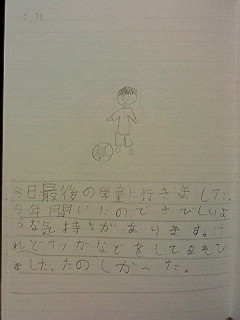 今日最後の学童に行きました。
5年間いたのでさびしいよ
うな気持ちがあります。け
れどサッカなどをしてあそび
ました。たのしかった。